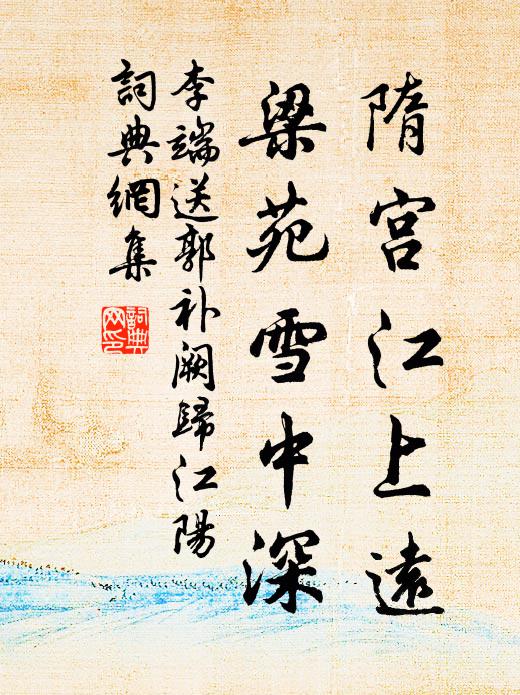 隋宫江上遠
梁苑雪中深
李端送郭补阙歸江陽
詞典網集
詞典
网印